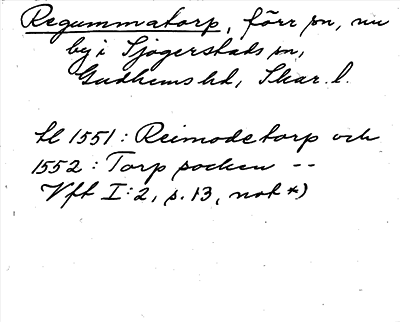 Regummatorp, förr sn, nu
by i Sjogerstads sn,
Gudhems hd, Skar. l.
hl 1551 : Reimodetorp och
1552 : Torp socken --
Vft I:2, s. 13, not *)